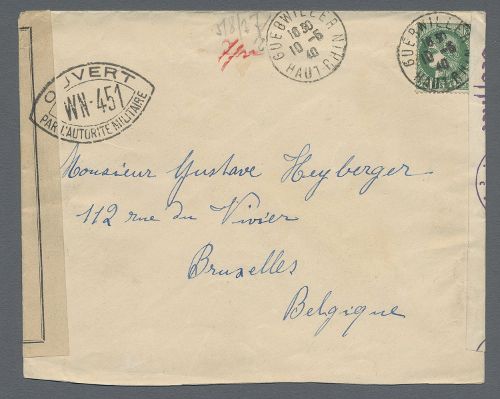 GUEBWILLER
10 30
10 - 6
40
HAUT-RHIN
GUEBWILLER
10 - 6
40
HAUT-RHIN
OUVERT
WN-451
PAR L'AUTORITÉ MILITAIRE
Monsieur Gustave Heyberger
112 rue du Vivier
Bruxelles
Belgique